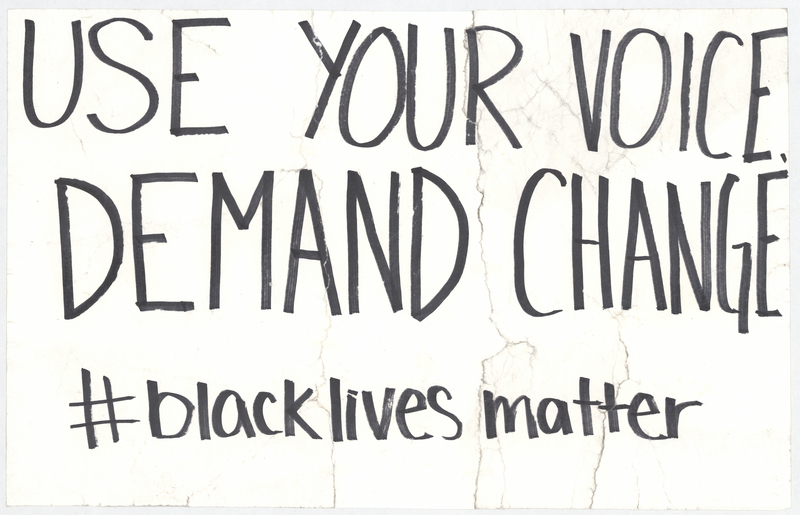 USE YOUR VOICE.
DEMAND CHANGE
#blacklives matter